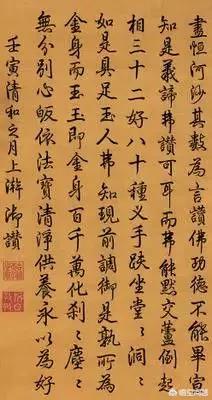 盡恒河沙其數為言讚佛功德不能畢宣
知是義諦弗讚可耳而弗能默交蘆倒起
相三十二好八十種义手趺坐堂〻洞〻
如是具足玉人弗知現前調御是孰所為
金身而玉玉即金身百千萬化剎〻塵〻
無分別心皈依法寶清淨供養永以為好
壬寅清和之月上澣御讚
悟空问答